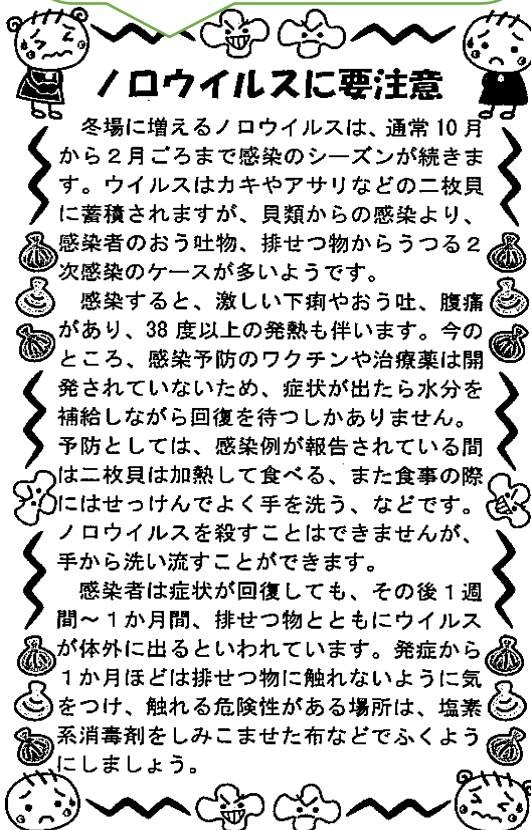 ノロウイルスに要注意
冬場に増えるノロウイルスは、通常10月
から2月ごろまで感染のシーズンが続きま
す。ウイルスはカキやアサリなどの二枚貝
に蓄積されますが、貝類からの感染より、
感染者のおう吐物、排せつ物からうつる2
次感染のケースが多いようです。
感染すると、激しい下痢やおう吐、腹痛
があり、38度以上の発熱も伴います。今の
ところ、感染予防のワクチンや治療薬は開
発されていないため、症状が出たら水分を
補給しながら回復を待つしかありません。
予防としては、感染例が報告されている間
は二枚貝は加熱して食べる、また食事の際
にはせっけんでよく手を洗う、などです。
ノロウイルスを殺すことはできませんが、
手から洗い流すことができます。
感染者は症状が回復しても、その後1週
間～1か月間、排せつ物とともにウイルス
が体外に出るといわれています。発症から
1か月ほどは排せつ物に触れないように気
をつけ、触れる危険性がある場所は、塩素
系消毒剤をしみこませた布などでふくよう
にしましょう。